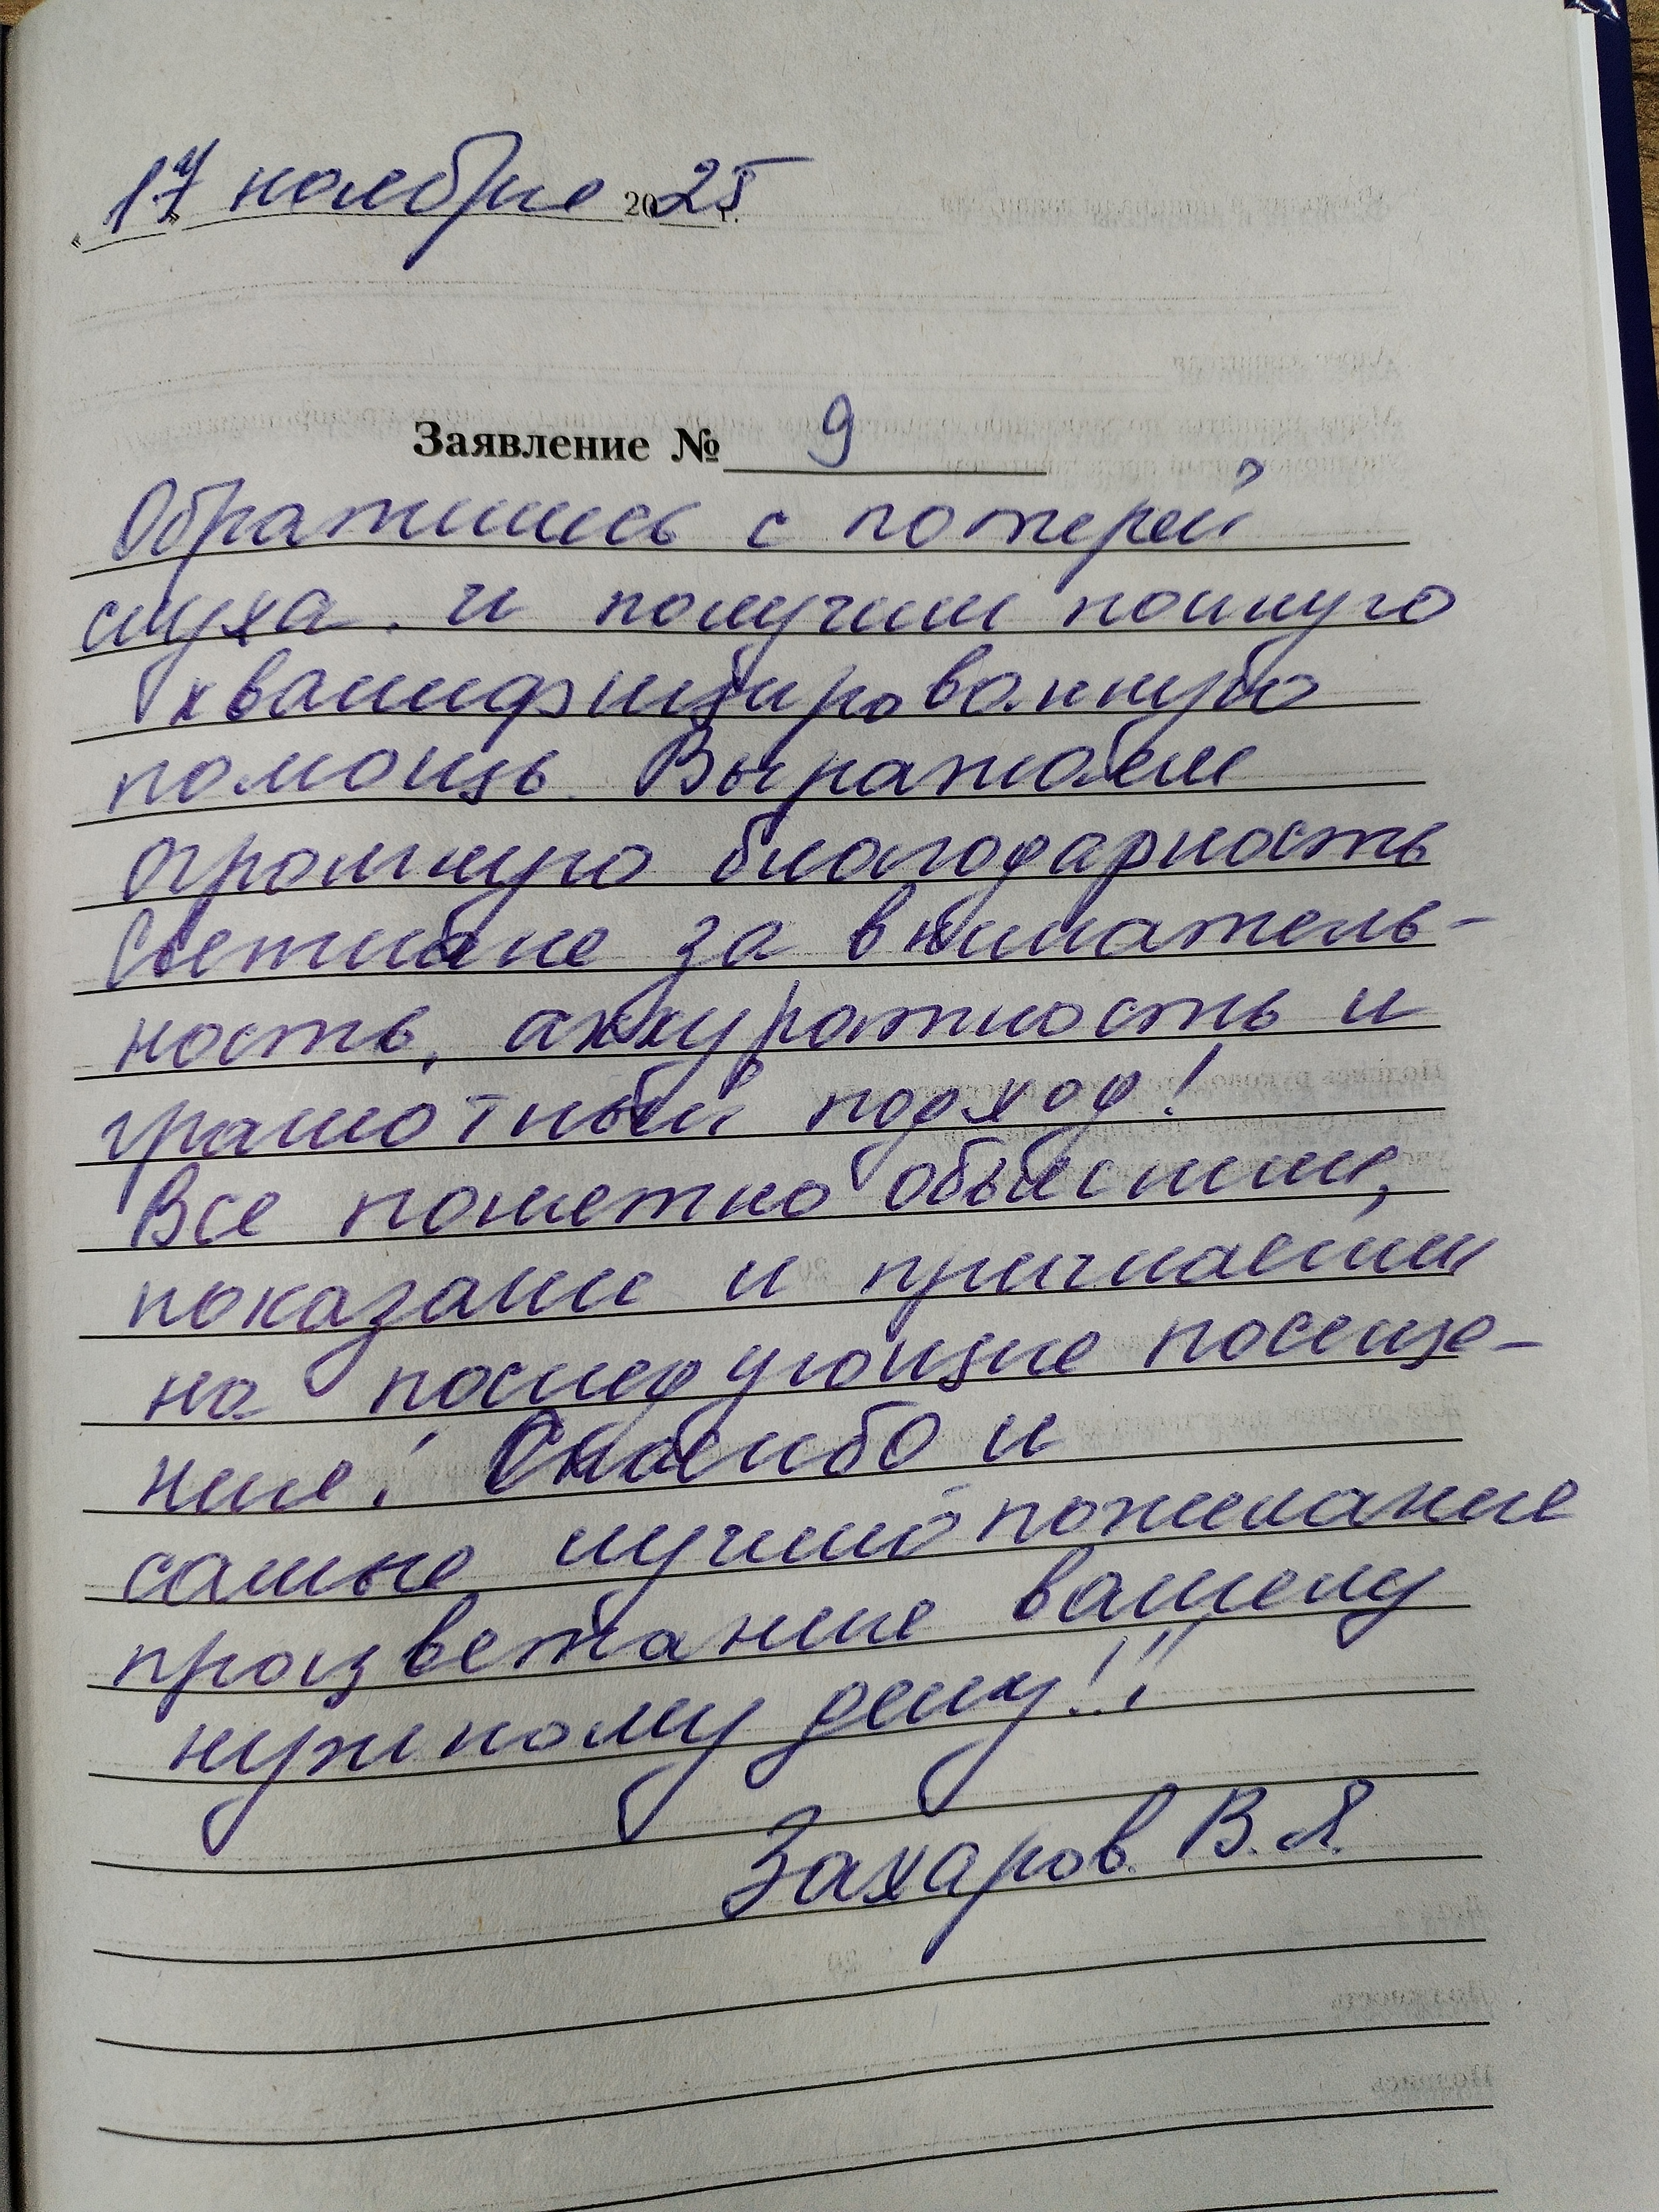 « 17 » ноября 2025 г.
Заявление № 9
Обратились с потерей
слуха. и получили полную
квалифицированную
помощь. Выражаем
огромную благодарность
Светлане за вниматель-
ность, аккуратность и
грамотный подход!
Все понятно объяснили,
показали и пригласили
на последующие посеще-
ние! Спасибо и
самые лучшие пожелание
процветание вашему
нужному делу!!!
Захаров В.Я.